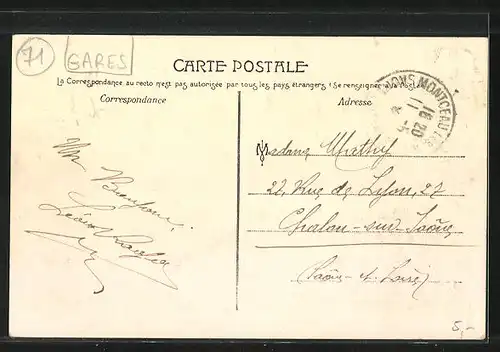 71
GARES
CARTE POSTALE
La Correspondance au recto n'est pas autorisée par tous les pays étrangers (Se renseigner à la Poste)
Correspondance
Adresse
MONTCEAU
16 20
Un Bonjour,
Madame Mathy
22, Rue de Lyon, 27
Chalon-sur-Saône
(Saône-et-Loire)
5,-